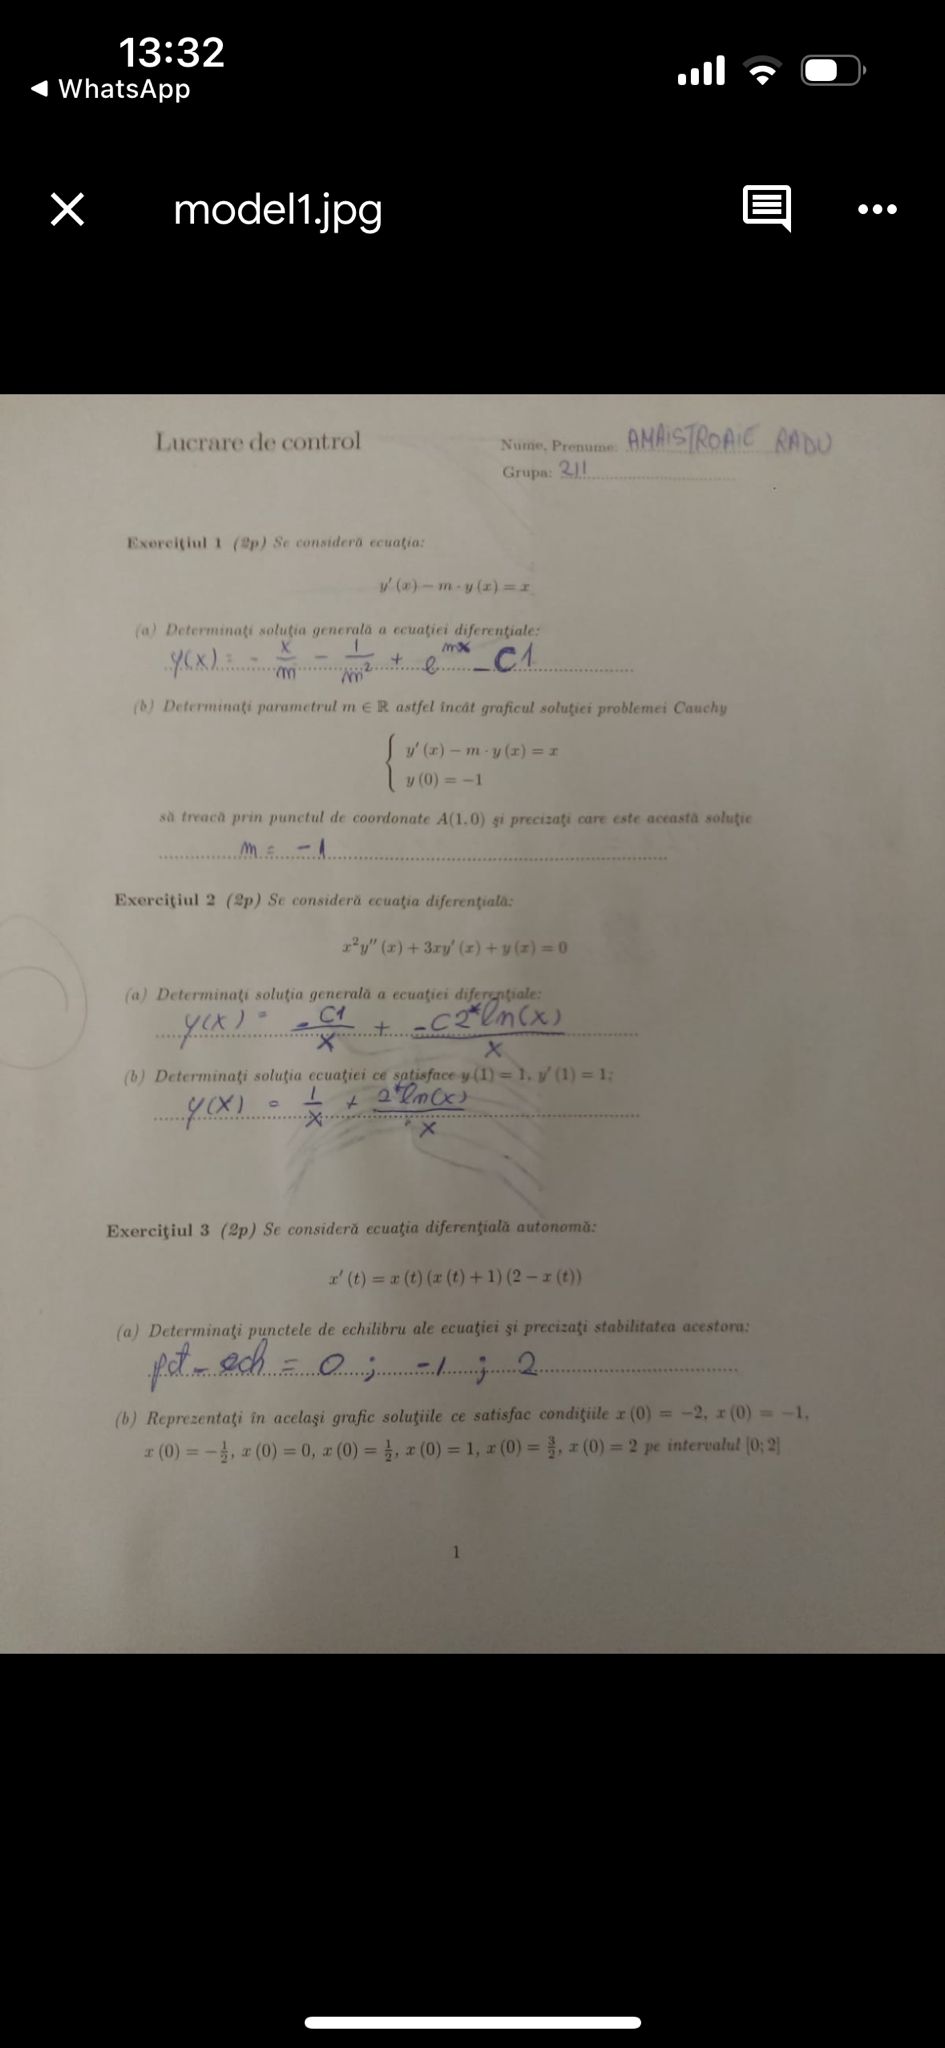 13:32
WhatsApp
model1.jpg
Lucrare de control
Nume, Prenume: AMAISTROAIE RADU
Grupa: 211
Exercițiul 1 (2p) Se consideră ecuația:
y′(x) − m · y(x) = x
(a) Determinați soluția generală a ecuației diferențiale:
y(x) = - x/m - 1/m² + e^mx _C1
(b) Determinați parametrul m ∈ ℝ astfel încât graficul soluției problemei Cauchy
{ y′(x) − m · y(x) = x
y(0) = −1
să treacă prin punctul de coordonate A(1,0) și precizați care este această soluție
m = -1
Exercițiul 2 (2p) Se consideră ecuația diferențială:
x²y″(x) + 3xy′(x) + y(x) = 0
(a) Determinați soluția generală a ecuației diferențiale:
y(x) = _C1/x + _C2*ln(x)/x
(b) Determinați soluția ecuației ce satisface y(1) = 1, y′(1) = 1;
y(x) = 1/x + 2*ln(x)/x
Exercițiul 3 (2p) Se consideră ecuația diferențială autonomă:
x′(t) = x(t)(x(t) + 1)(2 − x(t))
(a) Determinați punctele de echilibru ale ecuației și precizați stabilitatea acestora:
pct_ech = 0; -1; 2
(b) Reprezentați în același grafic soluțiile ce satisfac condițiile x(0) = −2, x(0) = −1,
x(0) = −1/2, x(0) = 0, x(0) = 1/2, x(0) = 1, x(0) = 3/2, x(0) = 2 pe intervalul [0; 2]
1